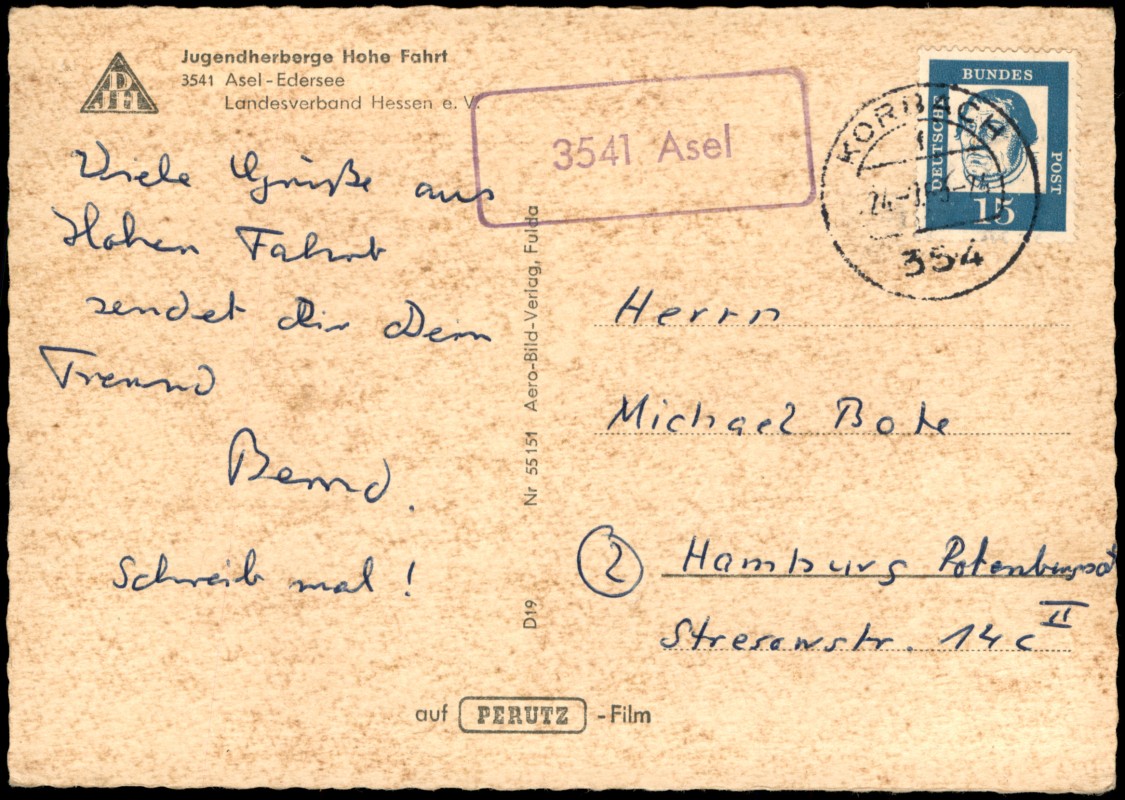 DJH
Jugendherberge Hohe Fahrt
3541 Asel-Edersee
Landesverband Hessen e. V.
3541 Asel
DEUTSCHE
BUNDES
POST
15
KORBACH
354
Viele Grüße aus
Hohen Fahrt
sendet Dir Dein
Freund
Bernd.
Schreib mal!
D19 Nr 55151 Aero-Bild-Verlag, Fulda
Herrn
Michael Bote
2 Hamburg
Stresowstr. 14c II
auf PERUTZ -Film